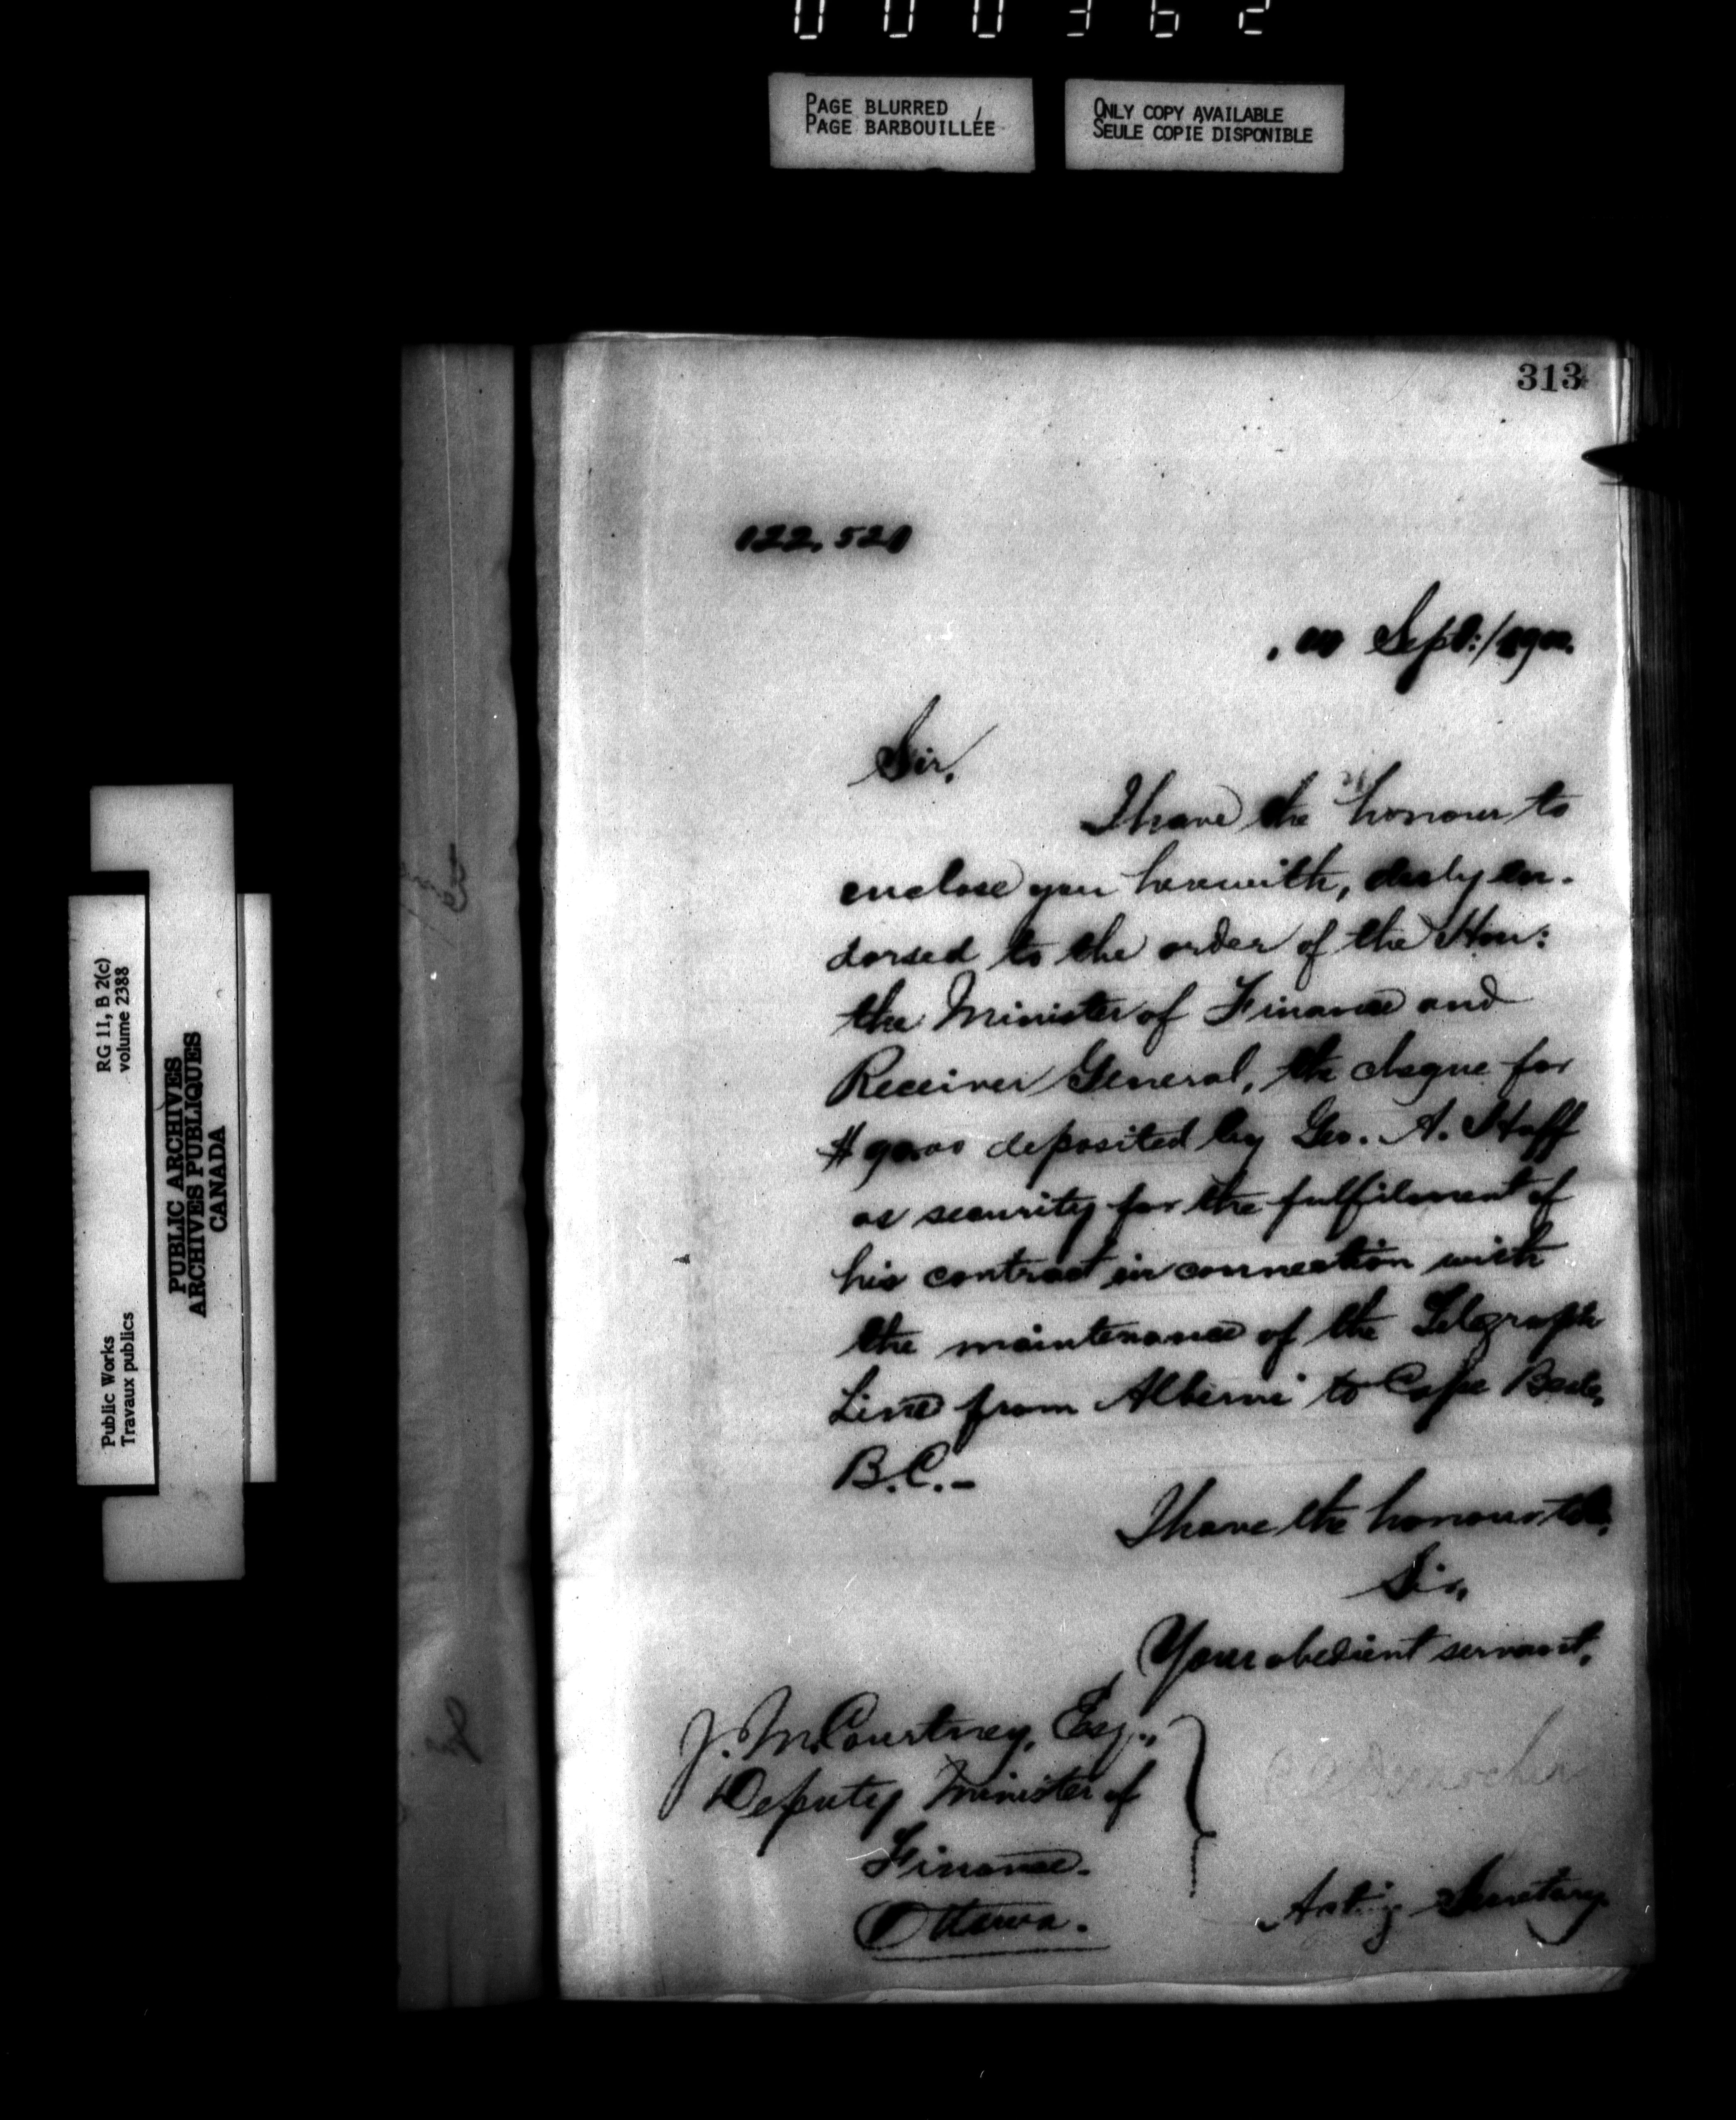 000362
PAGE BLURRED
PAGE BARBOUILLÉE
ONLY COPY AVAILABLE
SEULE COPIE DISPONIBLE
313
122,521
Sept:/1900.
Sir,
I have the honour to
enclose you herewith, duly en-
dorsed to the order of the Hon:
the Minister of Finance and
Receiver General, the cheque for
deposited by Geo. A. Huff
as security for the fulfilment of
his contract in connection with
the maintenance of the Telegraph
Line from Alberni to Cape Beale,
B.C.-
I have the honour to be,
Sir,
Your obedient servant,
J. M. Courtney, Esq.,
Deputy Minister of
Finance.
Ottawa.
Acting Secretary.
Public Works
Travaux publics
RG 11, B 2(c)
volume 2388
PUBLIC ARCHIVES
ARCHIVES PUBLIQUES
CANADA